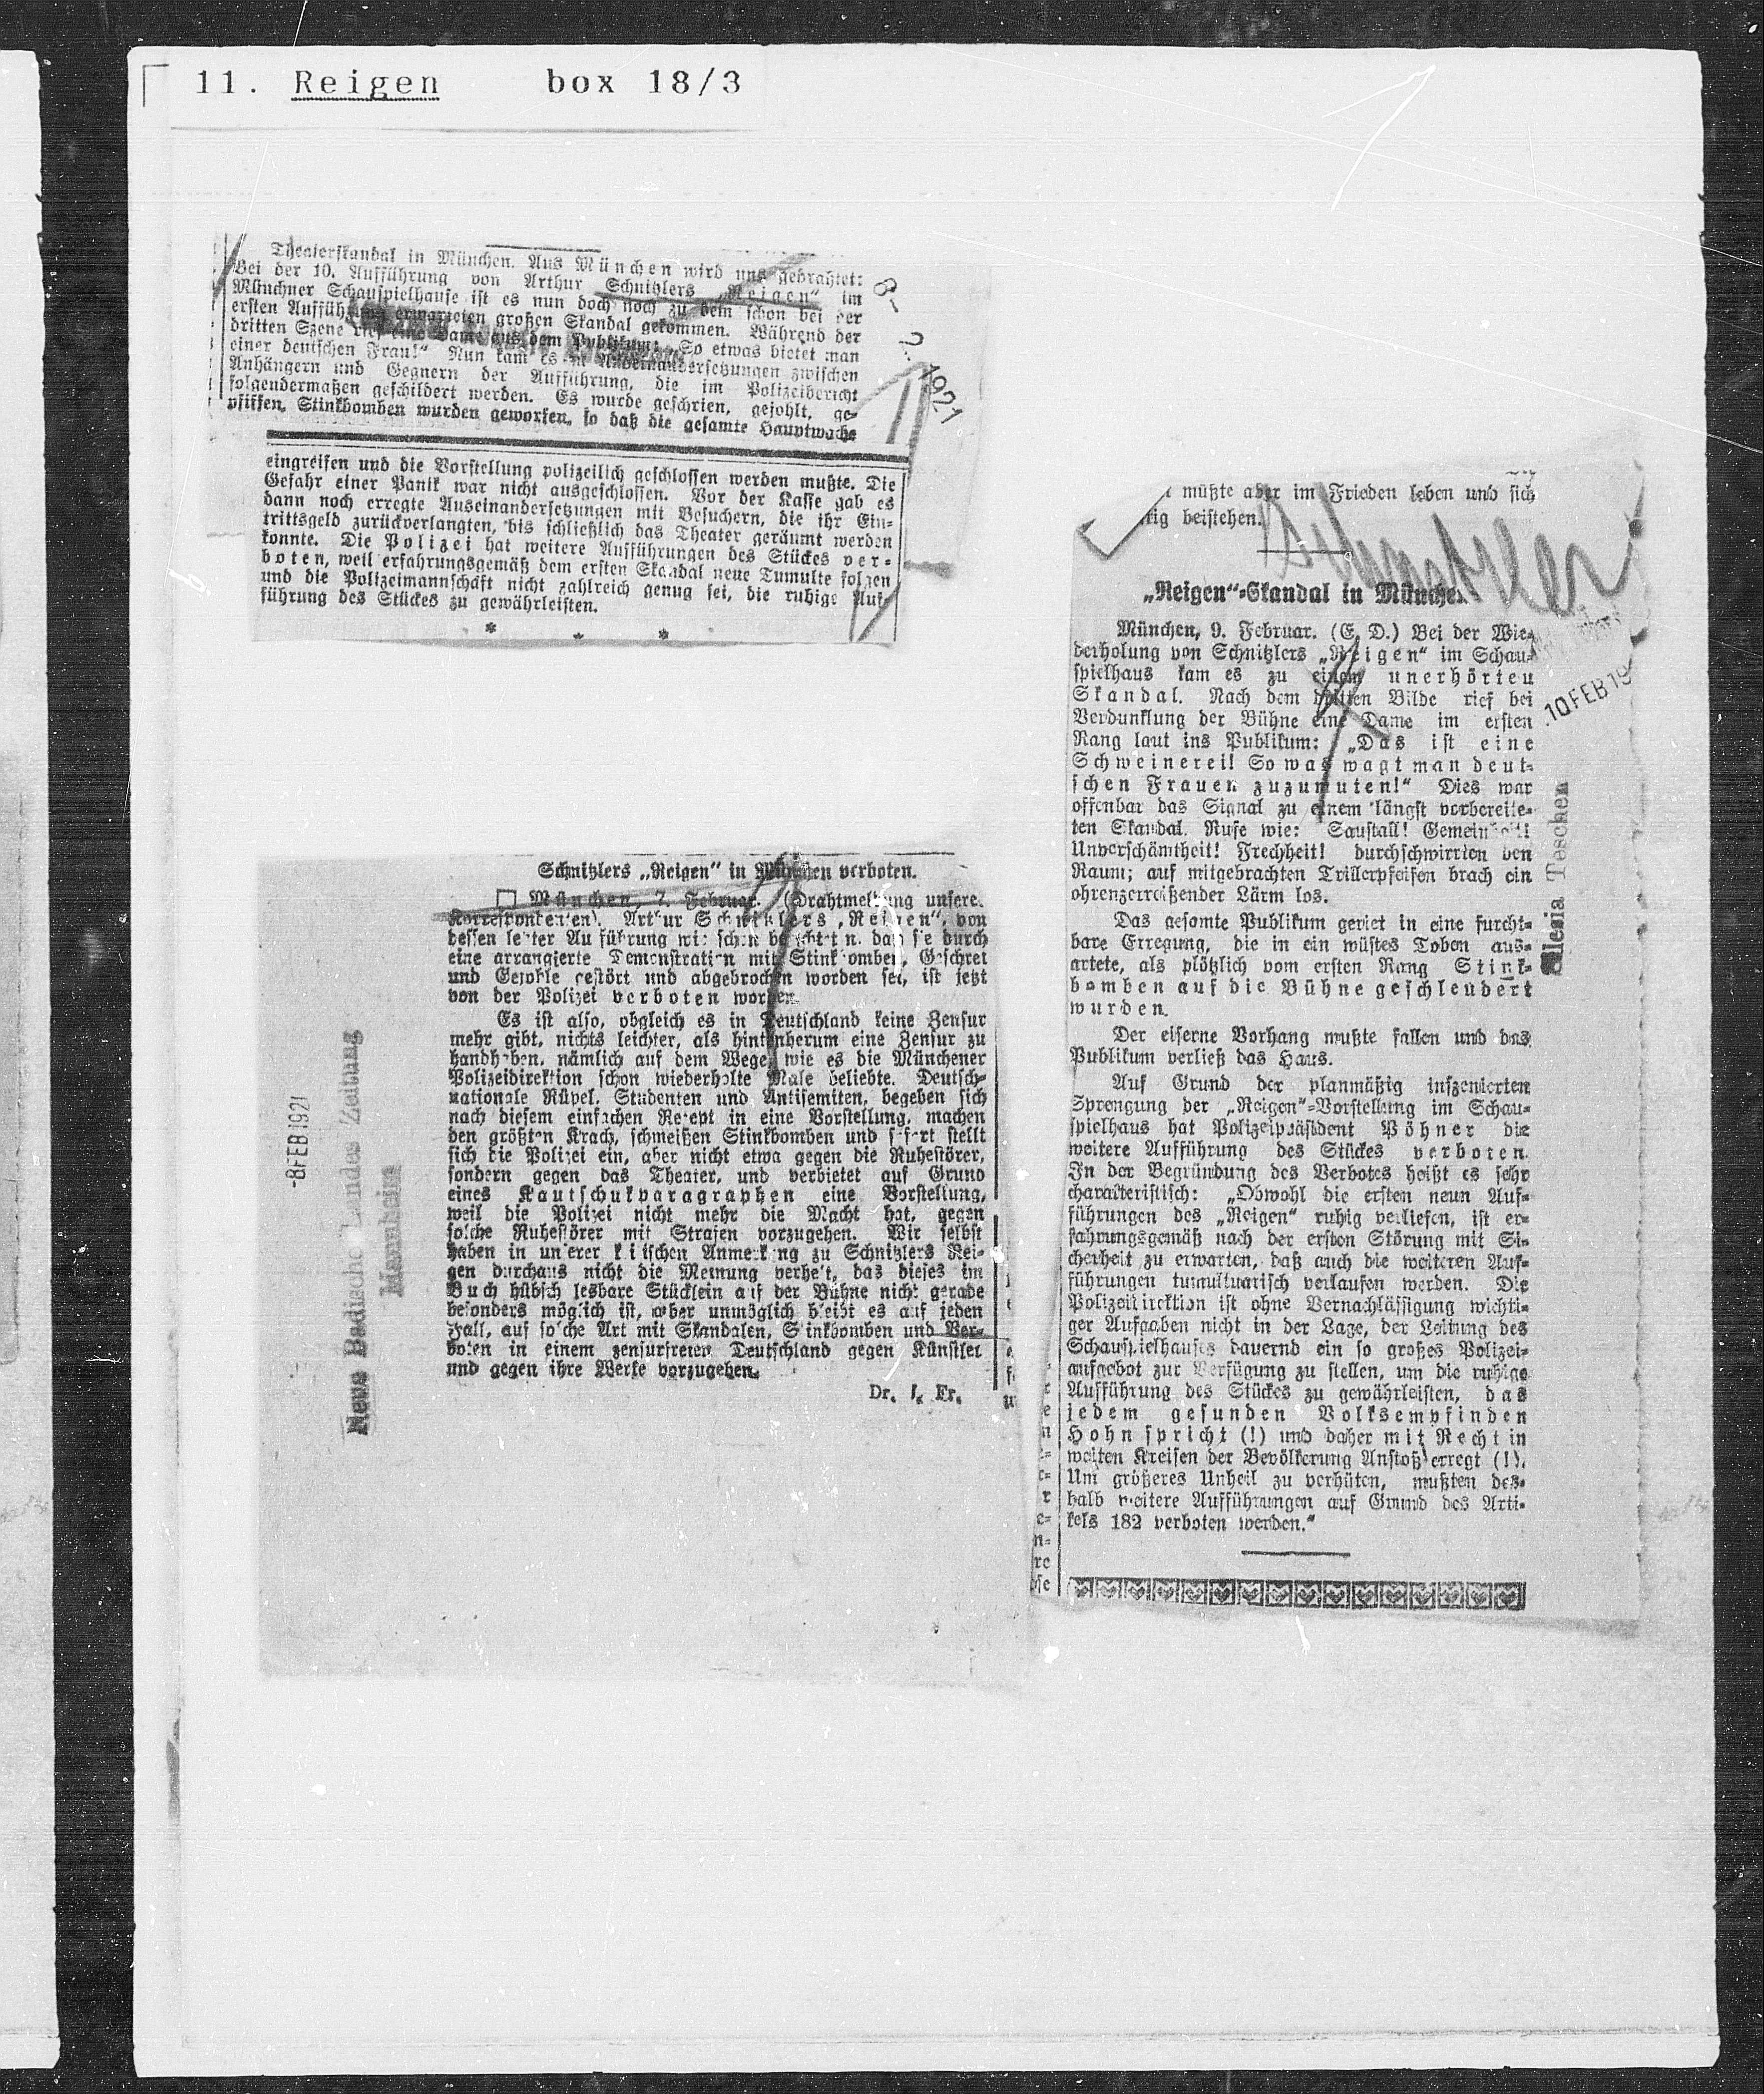 11. Reigen box 18/3
Theaterskandal in München. Aus München wird uns gedrahtet:
Bei der 10. Aufführung von Arthur Schnitzlers „Reigen“ im
Münchner Schauspielhause ist es nun doch noch zu dem schon bei der
ersten Aufführung erwarteten großen Skandal gekommen. Während der
dritten Szene rief eine Dame aus dem Publikum: „So etwas bietet man
einer deutschen Frau!“ Nun kam es zu Auseinandersetzungen zwischen
Anhängern und Gegnern der Aufführung, die im Polizeibericht
folgendermaßen geschildert werden. Es wurde geschrien, gejohlt, ge-
pfiffen, Stinkbomben wurden geworfen, so daß die gesamte Hauptwache
eingreifen und die Vorstellung polizeilich geschlossen werden mußte. Die
Gefahr einer Panik war nicht ausgeschlossen. Vor der Kasse gab es
dann noch erregte Auseinandersetzungen mit Besuchern, die ihr Ein-
trittsgeld zurückverlangten, bis schließlich das Theater geräumt werden
konnte. Die Polizei hat weitere Aufführungen des Stückes ver-
boten, weil erfahrungsgemäß dem ersten Skandal neue Tumulte folgen
und die Polizeimannschaft nicht zahlreich genug sei, die ruhige Auf-
führung des Stückes zu gewährleisten.
* * *
8-2.1921
Schnitzlers „Reigen“ in München verboten.
□ München, 7. Februar. (Drahtmeldung unseres
Korrespondenten). Artur Schnitzlers „Reigen“, von
dessen letzter Aufführung wir schon berichteten, daß sie durch
eine arrangierte Demonstration mit Stinkbomben, Geschrei
und Gejohle gestört und abgebrochen worden sei, ist jetzt
von der Polizei verboten worden.
Es ist also, obgleich es in Deutschland keine Zensur
mehr gibt, nichts leichter, als hintenherum eine Zensur zu
handhaben, nämlich auf dem Wege, wie es die Münchener
Polizeidirektion schon wiederholte Male beliebte. Deutsch-
nationale Rüpel, Studenten und Antisemiten, begeben sich
nach diesem einfachen Rezept in eine Vorstellung, machen
den größten Krach, schmeißen Stinkbomben und sofort stellt
sich die Polizei ein, aber nicht etwa gegen die Ruhestörer,
sondern gegen das Theater, und verbietet auf Grund
eines Kautschukparagraphen eine Vorstellung,
weil die Polizei nicht mehr die Macht hat, gegen
solche Ruhestörer mit Strafen vorzugehen. Wir selbst
haben in unserer kritischen Anmerkung zu Schnitzlers Rei-
gen durchaus nicht die Meinung verhehlt, das dieses im
Buch hübsch lesbare Stücklein auf der Bühne nicht gerade
besonders möglich ist, aber unmöglich bleibt es auf jeden
Fall, auf solche Art mit Skandalen, Stinkbomben und Ver-
boten in einem zensurfreien Deutschland gegen Künstler
und gegen ihre Werke vorzugehen.
Dr. Fr.
-8 FEB. 1921
Neue Badische Landes Zeitung
Mannheim
müßte aber im Frieden leben und sich
beistehen.
Schnitzler
„Reigen“-Skandal in München.
München, 9. Februar. (E. D.) Bei der Wie-
derholung von Schnitzlers „Reigen“ im Schau-
spielhaus kam es zu einem unerhörten
Skandal. Nach dem dritten Bilde rief bei
Verdunklung der Bühne eine Dame im ersten
Rang laut ins Publikum: „Das ist eine
Schweinerei! So was wagt man deut-
schen Frauen zuzumuten!“ Dies war
offenbar das Signal zu einem längst vorbereite-
ten Skandal. Rufe wie: Saustall! Gemeinheit!
Unverschämtheit! Frechheit! durchschwirrten den
Raum; auf mitgebrachten Trillerpfeifen brach ein
ohrenzerreißender Lärm los.
Das gesamte Publikum geriet in eine furcht-
bare Erregung, die in ein wüstes Toben aus-
artete, als plötzlich vom ersten Rang Stink-
bomben auf die Bühne geschleudert
wurden.
Der eiserne Vorhang mußte fallen und das
Publikum verließ das Haus.
Auf Grund der planmäßig inszenierten
Sprengung der „Reigen“-Vorstellung im Schau-
spielhaus hat Polizeipräsident Pöhner die
weitere Aufführung des Stückes verboten.
In der Begründung des Verbotes heißt es sehr
charakteristisch: „Obwohl die ersten neun Auf-
führungen des „Reigen“ ruhig verliefen, ist er-
fahrungsgemäß nach der ersten Störung mit Si-
cherheit zu erwarten, daß auch die weiteren Auf-
führungen tumultuarisch verlaufen werden. Die
Polizeidirektion ist ohne Vernachlässigung wichti-
ger Aufgaben nicht in der Lage, der Leitung des
Schauspielhauses dauernd ein so großes Polizei-
aufgebot zur Verfügung zu stellen, um die ruhige
Aufführung des Stückes zu gewährleisten, das
jedem gesunden Volksempfinden
Hohn spricht (!) und daher mit Recht in
weiten Kreisen der Bevölkerung Anstoß erregt (!).
Um größeres Unheil zu verhüten, mußten des-
halb weitere Aufführungen auf Grund des Arti-
kels 182 verboten werden.“
10 FEB 19
Silesia Teschen